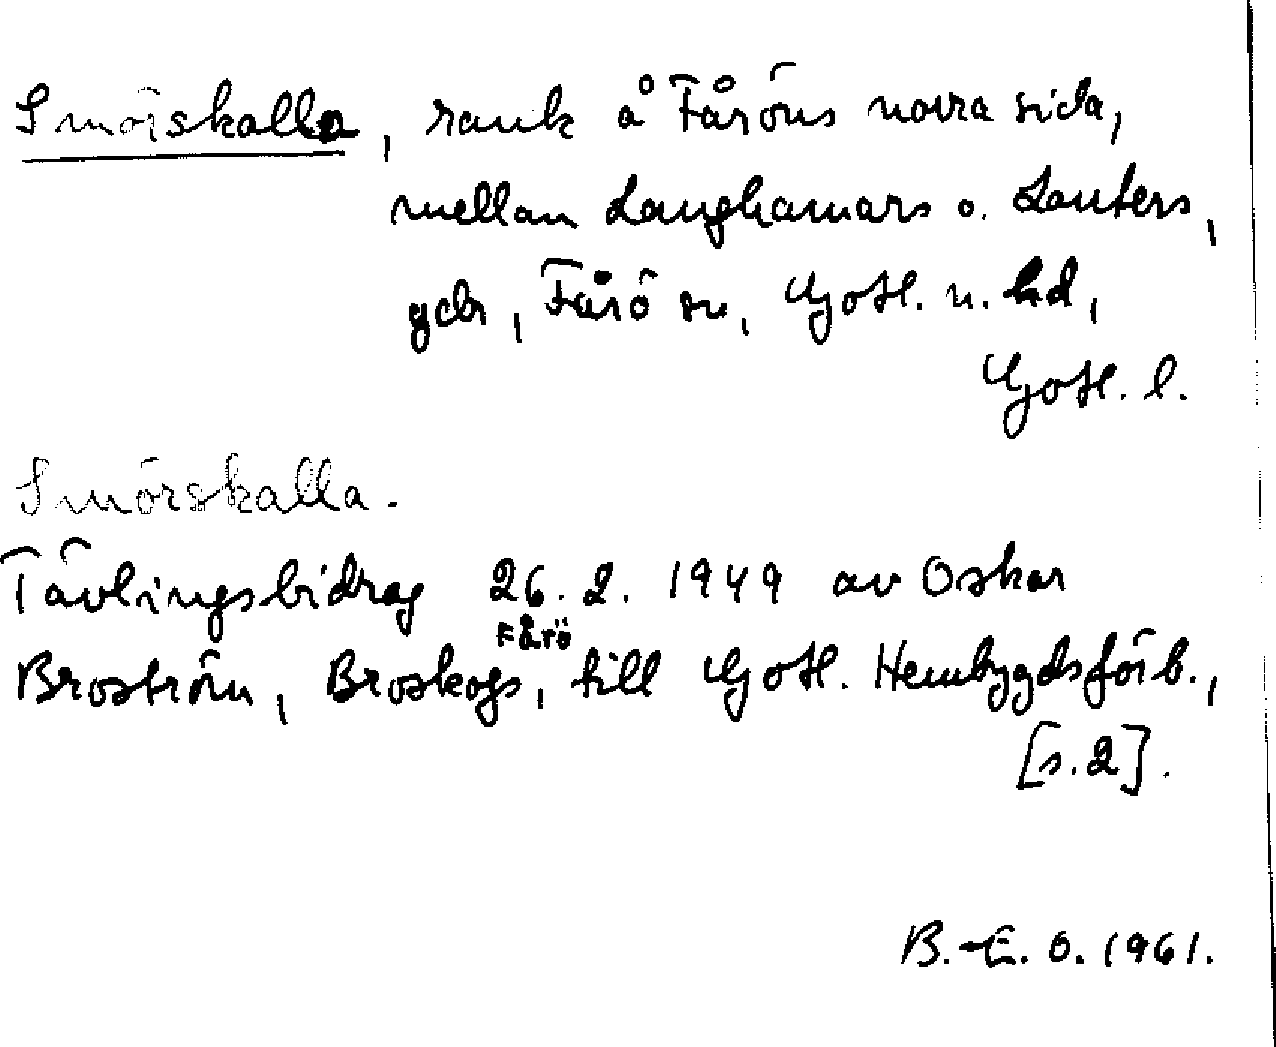 Smörskalla, rauk å Fåröns norra sida,
mellan Langhamars o. Lauters,
gdr, Fårö sn, Gotl. n. hd,
Gotl. l.
Smörskalla.
Tävlingsbidrag 26.2.1949 av Oskar
Fårö
Broström, Broskogs, till Gotl. Hembygdsförb.,
[s.2].
B.-E. O. 1961.